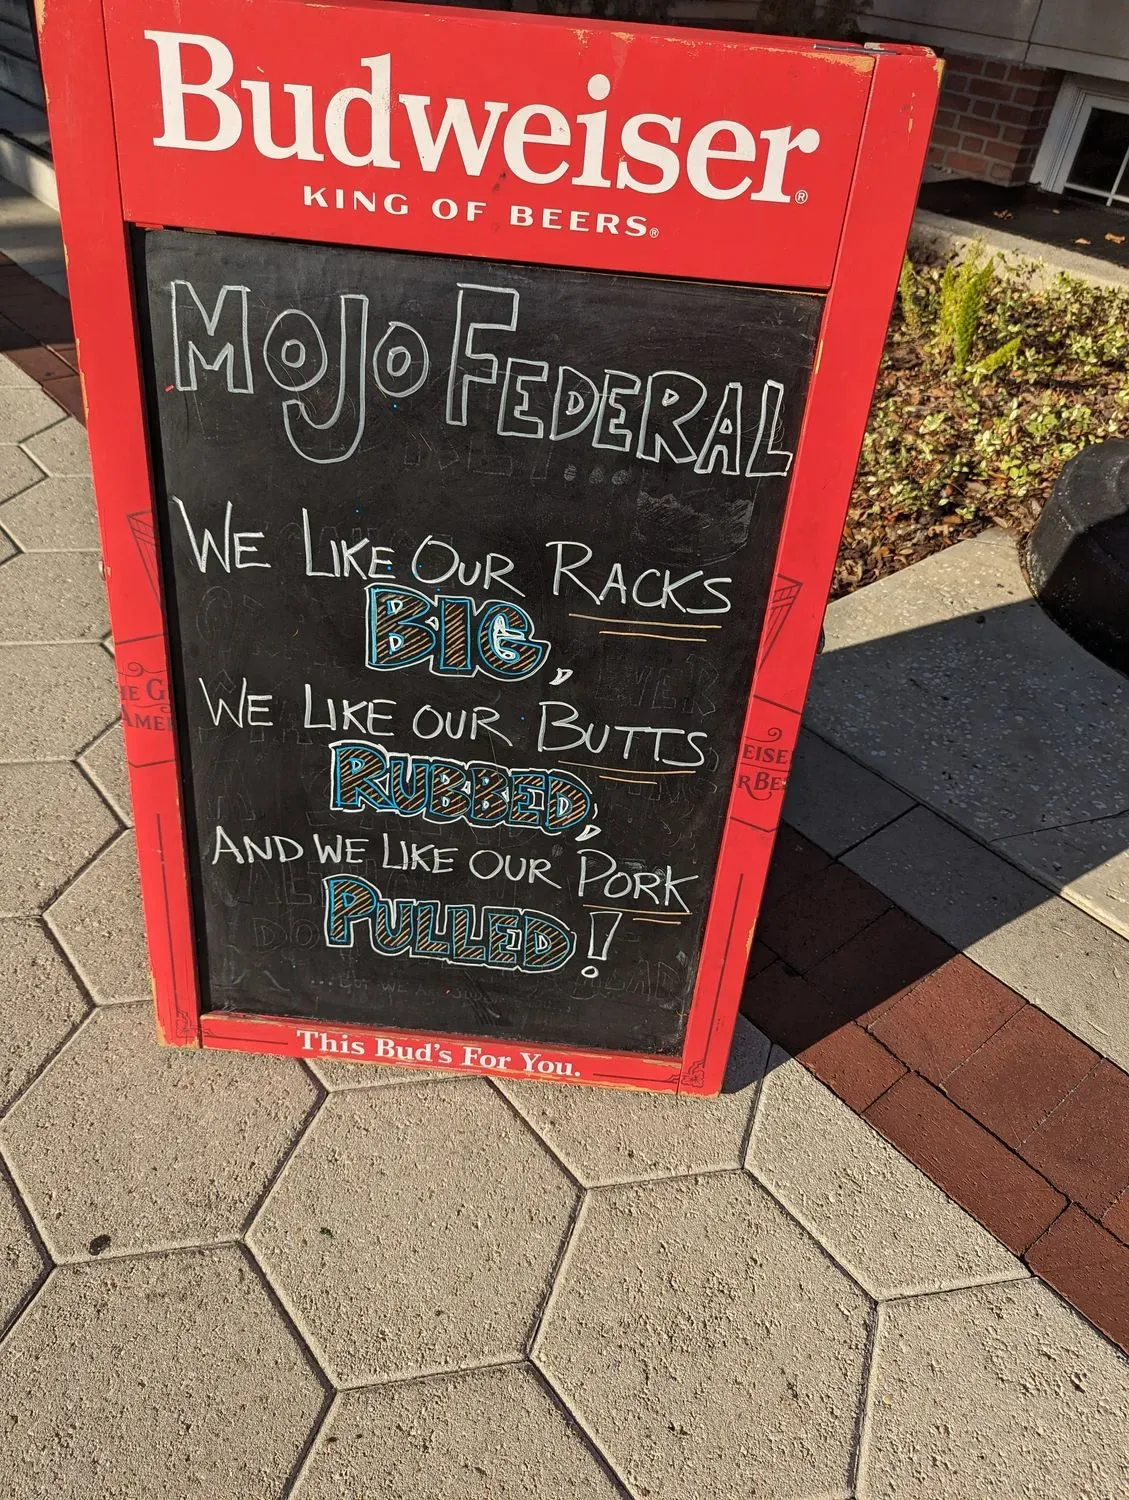 Budweiser®
KING OF BEERS®
MOJO FEDERAL
WE LIKE OUR RACKS
BIG,
WE LIKE OUR BUTTS
RUBBED,
AND WE LIKE OUR PORK
PULLED!
This Bud's For You.